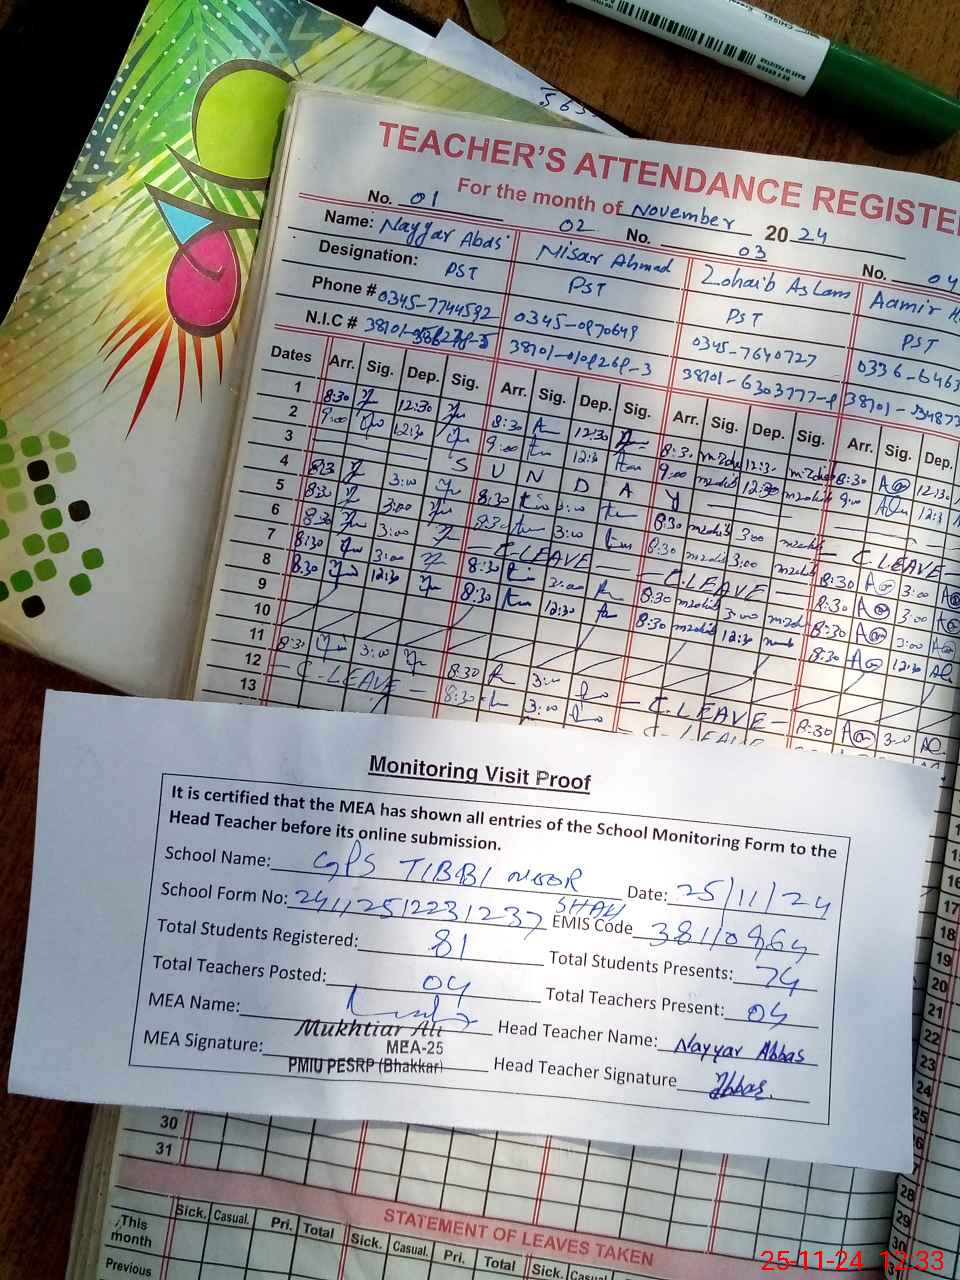 TEACHER'S ATTENDANCE REGISTER
For the month of November 2024
No. 01 02 No. 03 No. 04
Name: Nayyar Abas Nisar Ahmad Zohaib Aslam Aamir
Designation: PST PST PST PST
Phone # 0345-7744592 0345-0970649 0345-7640727 0336-6463
N.I.C # 38101- 38101-0109269-3 38101-6303777-9 38101-
Dates Arr. Sig. Dep. Sig. Arr. Sig. Dep. Sig. Arr. Sig. Dep. Sig. Arr. Sig. Dep.
1 8:30 12:30 8:30 12:30 8:30 12:30 8:30 12:30
2 9:00 12:30 9:00 12:30 9:00 12:30 9:00 12:30
3 S U N D A Y
4 8:30 3:00 8:30 3:00 8:30 3:00 C.LEAVE
5 8:30 3:00 8:30 3:00 8:30 3:00 8:30 3:00
6 8:30 3:00 C.LEAVE C.LEAVE 8:30 3:00
7 8:30 3:00 8:30 3:00 8:30 3:00 8:30 3:00
8 8:30 12:30 8:30 12:30 8:30 12:30 8:30 12:30
9
10
11 8:30 3:00 8:30 3:00 C.LEAVE 8:30 3:00
12 C.LEAVE 8:30 3:00 C.LEAVE
13
Monitoring Visit Proof
It is certified that the MEA has shown all entries of the School Monitoring Form to the
Head Teacher before its online submission.
School Name: GPS TIBBI NOOR SHAH Date: 25/11/24
School Form No: 24112512231237 EMIS Code 38110464
Total Students Registered: 81 Total Students Presents: 74
Total Teachers Posted: 04 Total Teachers Present: 04
MEA Name: Mukhtiar Ali Head Teacher Name: Nayyar Abbas
MEA-25
MEA Signature: PMIU PESRP (Bhakkar) Head Teacher Signature Abbas.
16
17
18
19
20
21
22
23
24
25
26
28
29
30
30
31
STATEMENT OF LEAVES TAKEN
Sick. Casual. Pri. Total Sick. Casual. Pri. Total Sick. Casual
This month
Previous
25-11-24 12:33